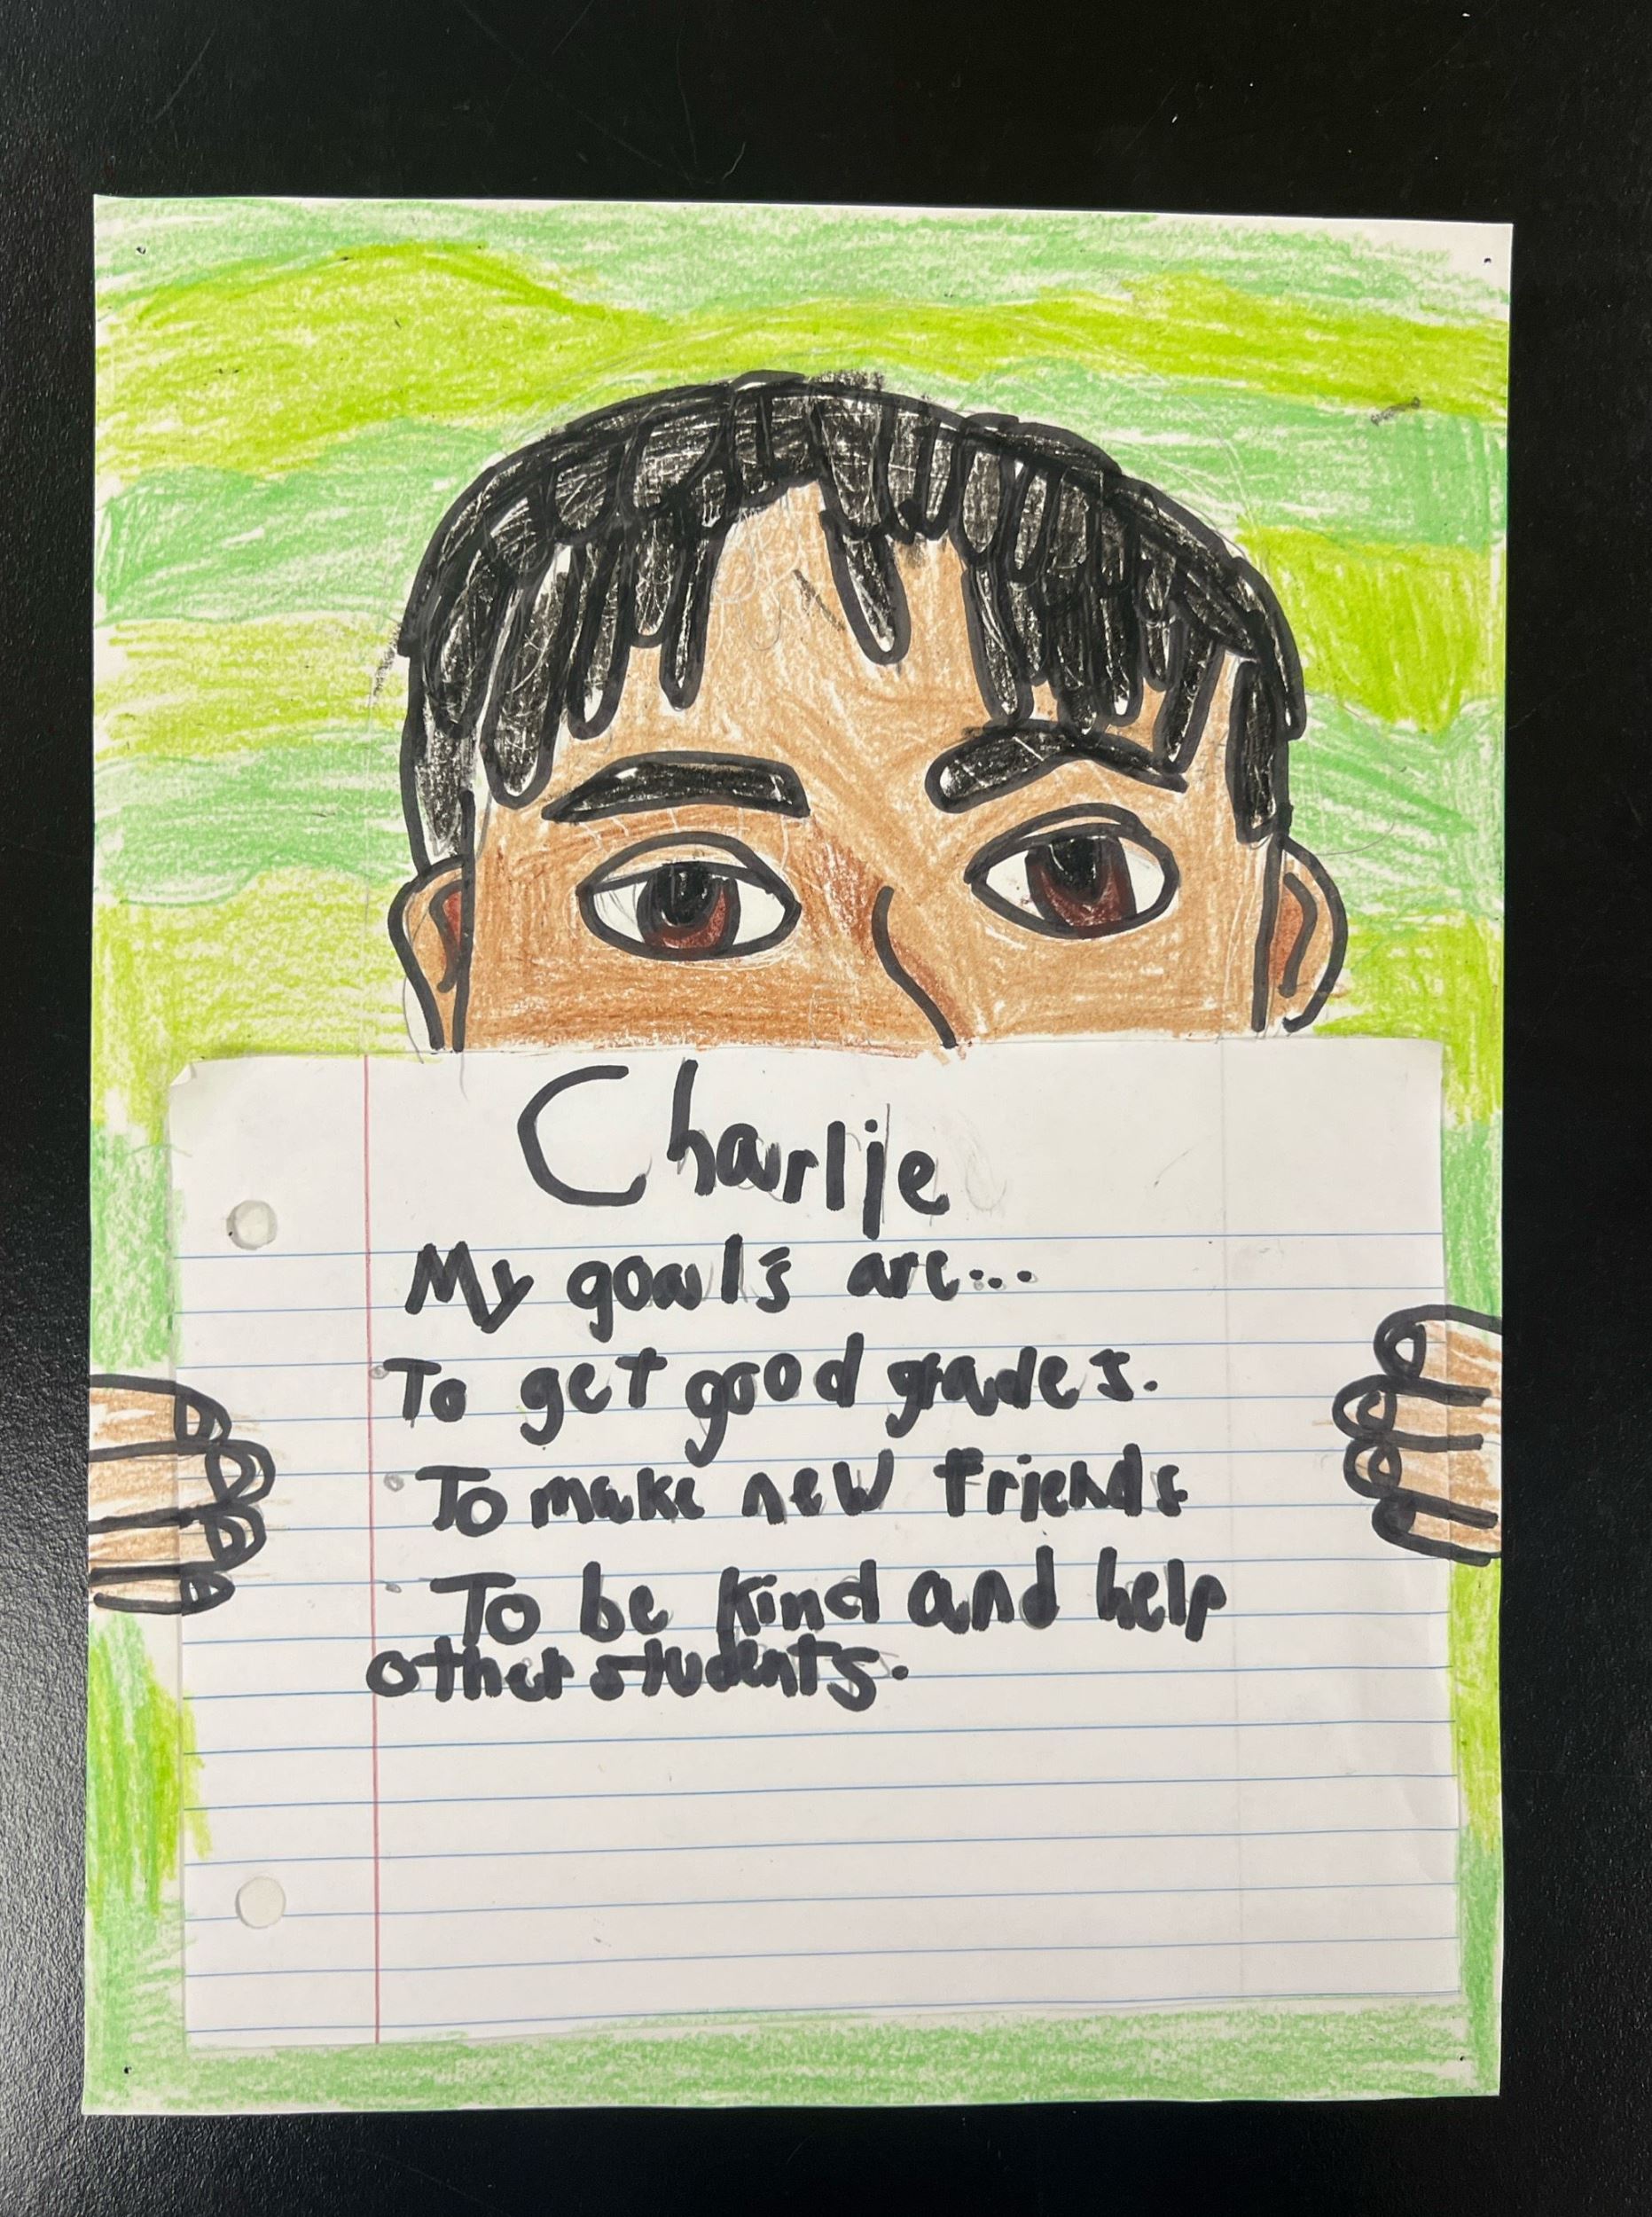 Charlie
My goals are...
To get good grades.
To make new friends
To be kind and help
other students.